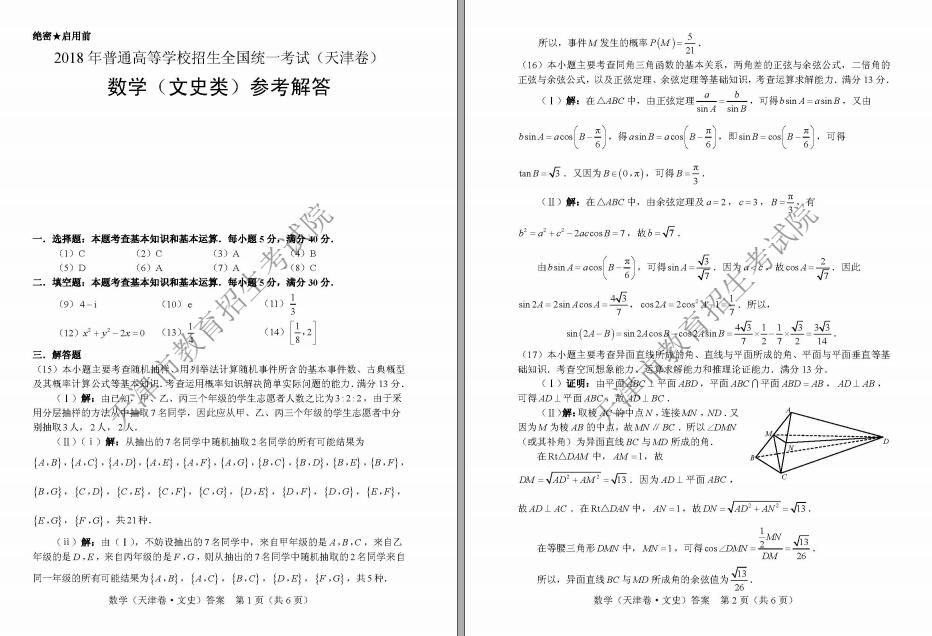 绝密★启用前
2018 年普通高等学校招生全国统一考试（天津卷）
数学（文史类）参考解答
一．选择题：本题考查基本知识和基本运算．每小题 5 分，满分 40 分．
（1）C （2）C （3）A （4）B
（5）D （6）A （7）A （8）C
二．填空题：本题考查基本知识和基本运算．每小题 5 分，满分 30 分．
（9）4－i （10）e （11）1/3
（12）x²＋y²－2x＝0 （13）1/4 （14）[1/8，2]
三．解答题
（15）本小题主要考查随机抽样、用列举法计算随机事件所含的基本事件数、古典概型
及其概率计算公式等基本知识．考查运用概率知识解决简单实际问题的能力．满分 13 分．
（Ⅰ）解：由已知，甲、乙、丙三个年级的学生志愿者人数之比为 3：2：2，由于采
用分层抽样的方法从中抽取 7 名同学，因此应从甲、乙、丙三个年级的学生志愿者中分
别抽取 3 人，2 人，2 人．
（Ⅱ）（ⅰ）解：从抽出的 7 名同学中随机抽取 2 名同学的所有可能结果为
{A,B}，{A,C}，{A,D}，{A,E}，{A,F}，{A,G}，{B,C}，{B,D}，{B,E}，{B,F}，
{B,G}，{C,D}，{C,E}，{C,F}，{C,G}，{D,E}，{D,F}，{D,G}，{E,F}，
{E,G}，{F,G}，共 21 种．
（ⅱ）解：由（Ⅰ），不妨设抽出的 7 名同学中，来自甲年级的是 A,B,C，来自乙
年级的是 D,E，来自丙年级的是 F,G，则从抽出的 7 名同学中随机抽取的 2 名同学来自
同一年级的所有可能结果为{A,B}，{A,C}，{B,C}，{D,E}，{F,G}，共 5 种．
数学（天津卷·文史）答案 第 1 页（共 6 页）
所以，事件 M 发生的概率 P(M)＝5/21．
（16）本小题主要考查同角三角函数的基本关系，两角差的正弦与余弦公式，二倍角的
正弦与余弦公式，以及正弦定理、余弦定理等基础知识，考查运算求解能力．满分 13 分．
（Ⅰ）解：在△ABC 中，由正弦定理 a/sin A＝b/sin B，可得 b sin A＝a sin B，又由
b sin A＝a cos(B－π/6)，得 a sin B＝a cos(B－π/6)，即 sin B＝cos(B－π/6)，可得
tan B＝√3．又因为 B∈(0，π)，可得 B＝π/3．
（Ⅱ）解：在△ABC 中，由余弦定理及 a＝2，c＝3，B＝π/3，有
b²＝a²＋c²－2ac cos B＝7，故 b＝√7．
由 b sin A＝a cos(B－π/6)，可得 sin A＝√3/√7．因为 a<c，故 cos A＝2/√7．因此
sin 2A＝2sin A cos A＝4√3/7，cos 2A＝2cos² A－1＝1/7．所以，
sin(2A－B)＝sin 2A cos B－cos 2A sin B＝4√3/7×1/2－1/7×√3/2＝3√3/14．
（17）本小题主要考查异面直线所成的角、直线与平面所成的角、平面与平面垂直等基
础知识．考查空间想象能力、运算求解能力和推理论证能力．满分 13 分．
（Ⅰ）证明：由平面 ABC⊥平面 ABD，平面 ABC∩平面 ABD＝AB，AD⊥AB，
可得 AD⊥平面 ABC，故 AD⊥BC．
（Ⅱ）解：取棱 AC 的中点 N，连接 MN，ND．又
因为 M 为棱 AB 的中点，故 MN∥BC．所以∠DMN
（或其补角）为异面直线 BC 与 MD 所成的角．
在 Rt△DAM 中，AM＝1，故
DM＝√(AD²＋AM²)＝√13．因为 AD⊥平面 ABC，
故 AD⊥AC．在 Rt△DAN 中，AN＝1，故 DN＝√(AD²＋AN²)＝√13．
在等腰三角形 DMN 中，MN＝1，可得 cos∠DMN＝(1/2 MN)/DM＝√13/26．
所以，异面直线 BC 与 MD 所成角的余弦值为√13/26．
A
M
N
D
B
C
数学（天津卷·文史）答案 第 2 页（共 6 页）
天津市教育招生考试院
天津市教育招生考试院